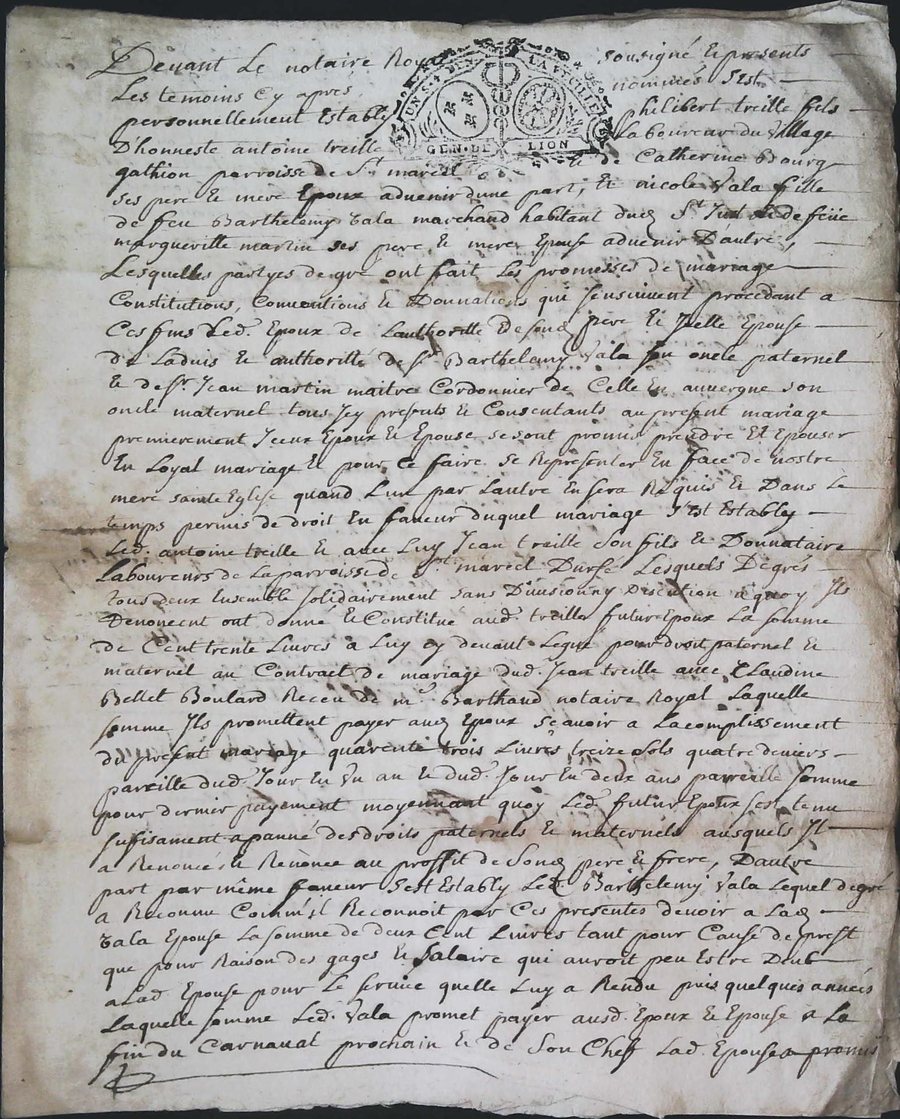 Devant Le notaire Royal sousigné & presents
Les temoins Cy apres nommés s'est
personnellement Estably philibert treille fils
D'honneste antoine treille Laboureur du Village
gathion parroisse de St marcel & de Catherine Bourg
ses pere & mere Epoux advenir d'une part, Et nicole Vala fille
de feu Barthelemy Vala marchand habitant dud St Just & de feüe
margueritte martin ses pere & mere Epouse advenir D'autre,
Lesquelles partyes de gré ont fait Les promesses de mariage
Constitutions, Conventions & Donnations qui sensuivent procedant a
Ces fins Led. Epoux de Lauthoritté de sond pere Et Icelle Epouse
de Ladvis & authoritté de Sr Barthelemy Vala son oncle paternel
& de Sr Jean martin maitre Cordonnier de Celle En auvergne son
oncle maternel tous Icy presents & Consentants au present mariage
premierement Iceux Epoux & Epouse se sont promis prendre Et Epouser
En Loyal mariage & pour Ce faire se Representer En face de nostre
mere sainte Eglise quand L'un par L'autre En sera Requis & Dans Le
temps permis de droit En faveur duquel mariage s'est Estably
Led. antoine treille & avec Luy Jean treille son fils & Donnataire
Laboureurs de La parroisse de St marcel Durfé Lesquels De gres
tous deux Ensemble solidairement sans Division ny Discution a quoy Ils
Renoncent ont donné & Constitué aud. treille futur Epoux La somme
de Cent trente Livres a Luy cy devant Legué pour droit paternel &
maternel au Contract de mariage dud. Jean treille avec Claudine
Bellet Boulard Receu de me. Barthaud notaire Royal Laquelle
somme Ils promettent payer aud Epoux scavoir a L'acomplissement
du present mariage quarente trois Livres treize sols quatre deniers
pareille dud. Jour En Un an & dud. Jour En deux ans parreille somme
pour dernier payement moyennant quoy Led. futur Epoux s'est tenu
sufisament apanné des droits paternels & maternels ausquels Il
a Renoncé & Renonce au proffit de Sond pere & frere, D'autre
part par même faveur s'est Estably Led. Barthelemy Vala Lequel de gré
a Reconnu Comm'il Reconnoit par Ces presentes devoir a Lad
Vala Epouse La somme de deux Cent Livres tant pour Cause de prest
que pour Raison des gages & salaire qui auroit peu Estre Deub
a Lad Epouse pour Le service quelle Luy a Rendu puis quelques années
Laquelle somme Led. Vala promet payer ausd. Epoux & Epouse a La
fin du Carnaval prochain & de son Chef Lad. Epouse a promis
UN S. 4 DEN. LA FEUILLE
GEN. DE LION